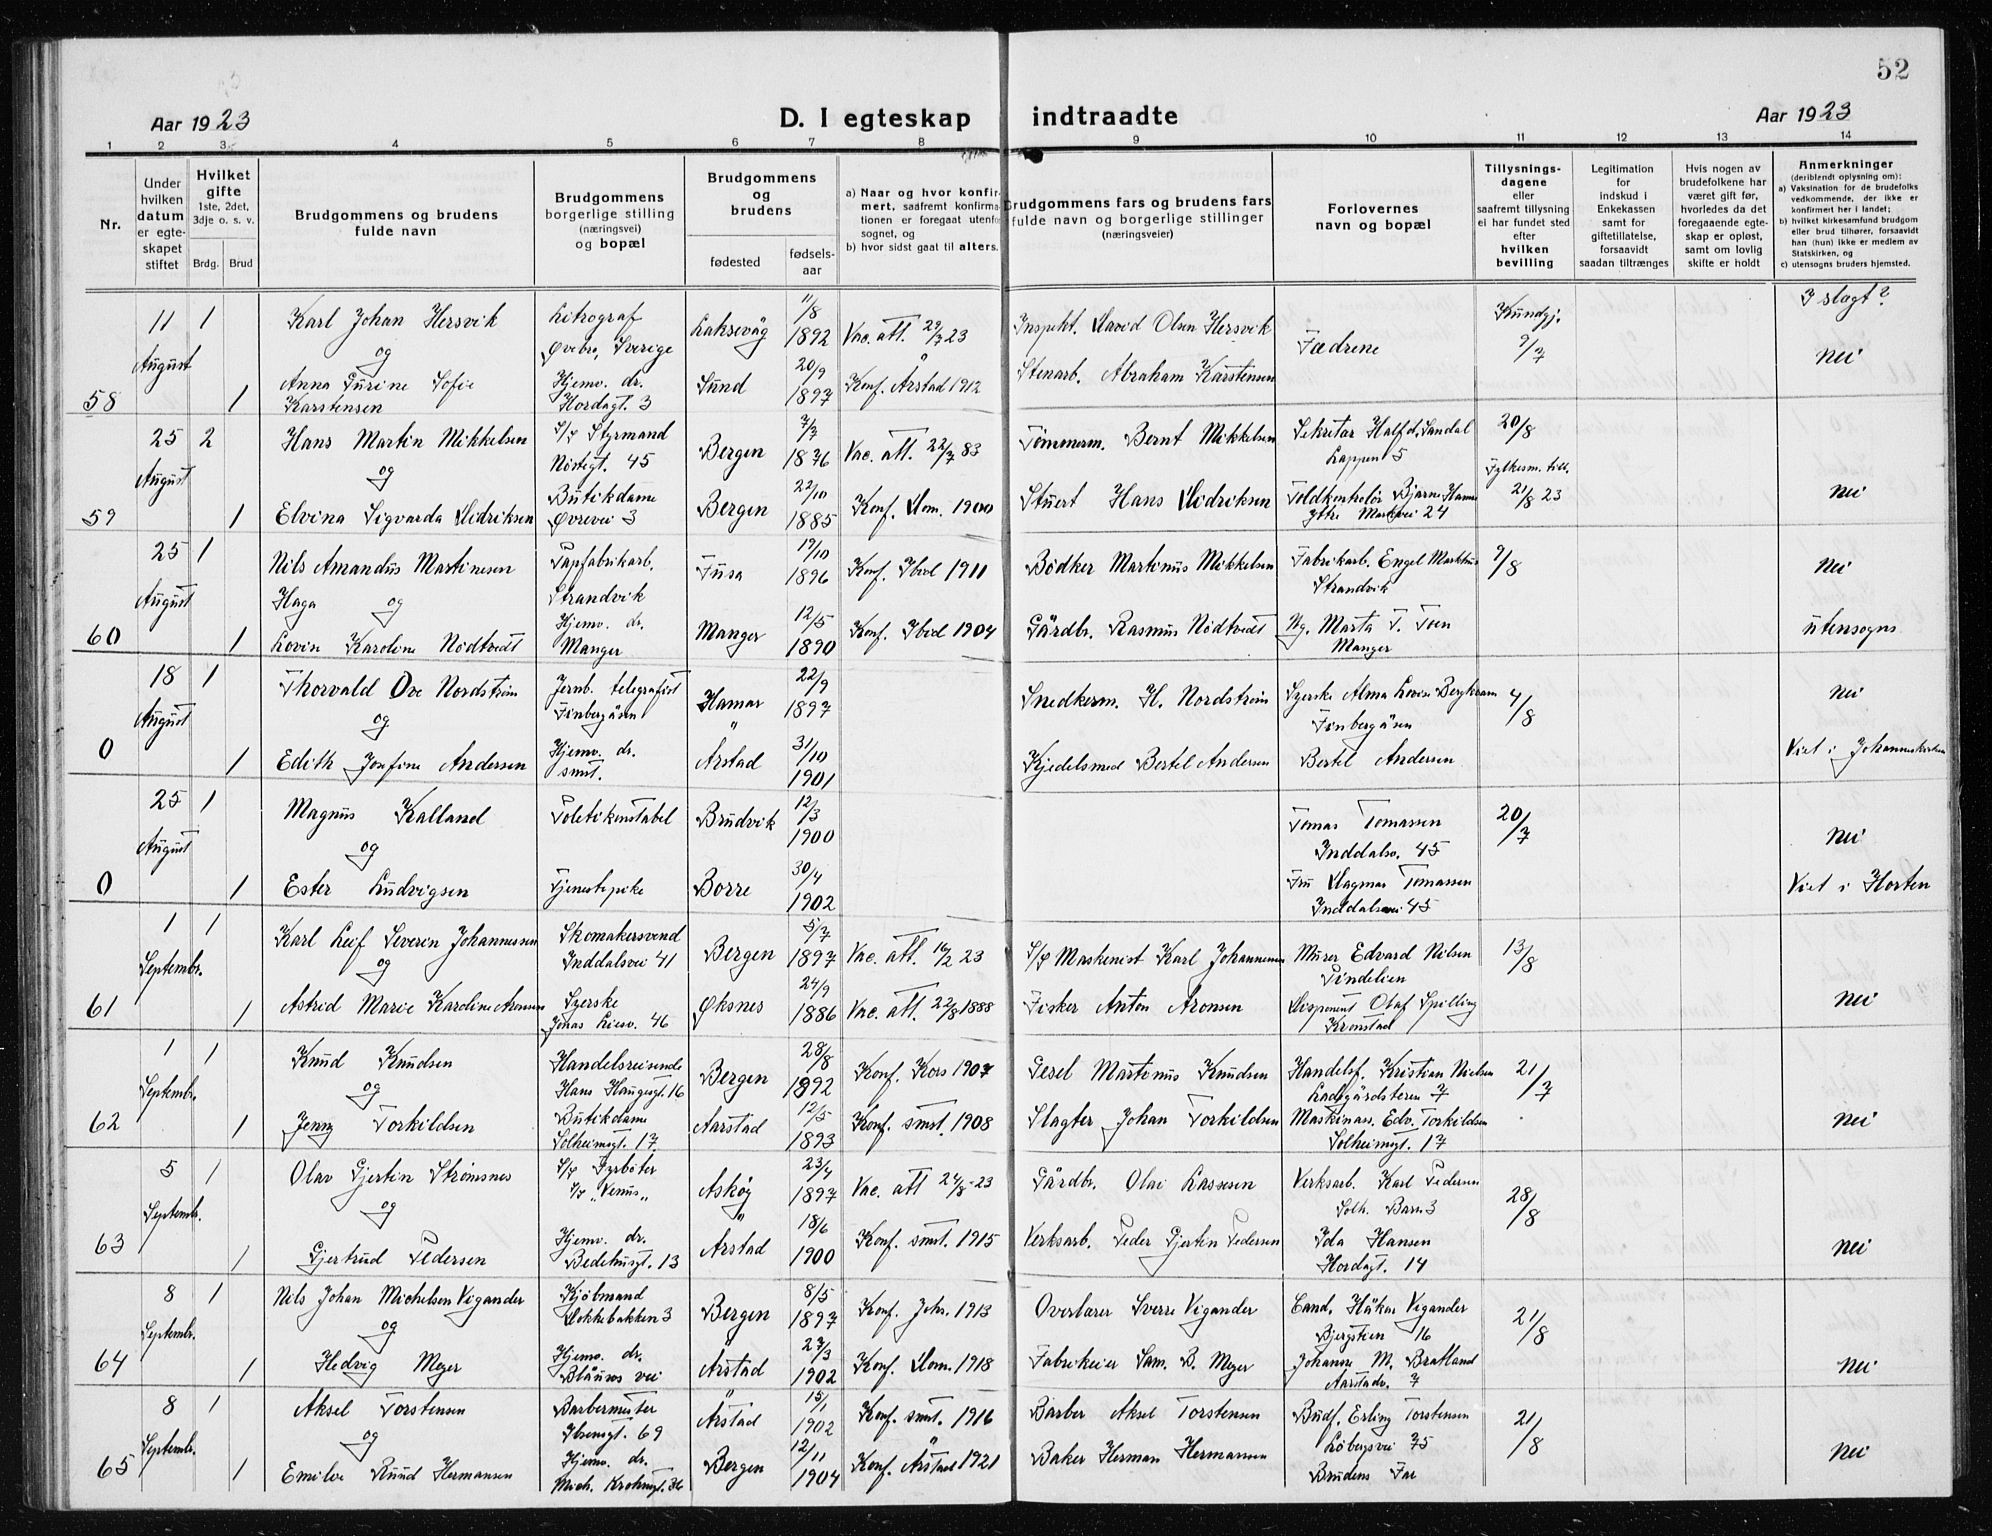 52
Aar 1923
D. I egteskap indtraadte
Aar 1923
1 2 3 4 5 6 7 8 9 10 11 12 13 14
Nr.
Under hvilken datum er egteskapet stiftet
Hvilket gifte 1ste, 2det, 3dje o. s. v.
Brdg. Brud
Brudgommens og brudens fulde navn
Brudgommens borgerlige stilling (næringsvei) og bopæl
Brudgommens og brudens
fødested fødselsaar
a) Naar og hvor konfirmert, saafremt konfirmationen er foregaat utenfor sognet, og
b) hvor sidst gaat til alters.
Brudgommens fars og brudens fars fulde navn og borgerlige stillinger (næringsveier)
Forlovernes navn og bopæl
Tillysningsdagene eller saafremt tillysning ei har fundet sted efter hvilken bevilling
Legitimation for indskud i Enkekassen samt for giftetillatelse, forsaavidt saadan tiltrænges
Hvis nogen av brudefolkene har været gift før, hvorledes da det foregaaende egteskap er opløst, samt om lovlig skifte er holdt
Anmerkninger (deriblandt oplysning om):
a) Vaksination for de brudefolks vedkommende, der ikke er konfirmert her i landet;
b) hvilket kirkesamfund brudgom eller brud tilhører, forsaavidt han (hun) ikke er medlem av Statskirken, og
c) utensogns bruders hjemsted.
I slagt?
58 11 August 1 Karl Johan Hersvik Litograf Örebro, Sverige Laksevåg 11/8 1892 Vac. att. 29/3 23 Inspekt. David Olsen Hersvik Fædrene Kundgj. 9/7
og
1 Anna Gurine Sofie Karstensen Hjemv. dr. Hordagt. 3 Sund 20/9 1897 Konf. Årstad 1912 Stenarb. Abraham Karstensen nei
59 25 August 2 Hans Martin Mikkelsen S/s Styrmand Nøstegt. 45 Bergen 7/7 1876 Vac. att. 22/7 83 Tømmerm. Bernt Mikkelsen Sekretær Halfd. Sandal Lappen 5 20/8
og
1 Elvina Sigvarda Didriksen Butikdame Øvrevei 3 Bergen 22/10 1885 Konf. Dom. 1900 Stuert Hans Didriksen Toldkontrolør Bjarne Hanne Ytre Markvei 24 Fylkesm. till. 21/8 23 nei
60 25 August 1 Nils Amandus Martinesen Haga Tapfabrikarb. Strandvik Fusa 19/10 1896 Konf. Ibid 1911 Bødker Martinus Mikkelsen Fabrikarb. Engel Markhus Strandvik 9/8 nei
og
1 Lovise Karoline Nødtvedt Hjemv. dr. Manger Manger 12/5 1890 Konf. Ibid 1904 Gårdbr. Rasmus Nødtvedt Ng. Marta T. Toen Manger utensogns
0 18 August 1 Thorvald Ove Nordstrøm Jernb. telegrafist Finbergåsen Hamar 22/9 1897 Snedkerm. H. Nordstrøm Syerske Alma Lovise Bergkram Finbergåsen 4/8 nei
og
1 Edith Josefine Andersen Hjemv. dr. smst. Årstad 31/10 1901 Kjedelsmed Bertel Andersen Bertel Andersen Viet i Johanneskirken
0 25 August 1 Magnus Kalland Politikonstabel Brudvik 12/3 1900 Tomas Tomassen Inddalsv. 45 20/7 nei
og
1 Ester Ludvigsen Tjenestepike Borre 30/4 1902 Fru Dagmar Tomassen Inddalsvei 45 Viet i Horten
61 1 Septembr. 1 Karl Leif Severin Johannessen Skomakersvend Inddalsvei 41 Bergen 5/7 1897 Vac. att. 16/2 23 S/s Maskinist Karl Johannessen Murer Edvard Nilsen Tindelien 13/8
og
1 Astrid Marie Karoline Aronsen Syerske Jonas Liesv. 46 Øksnes 24/9 1886 Vac. att. 22/8 1888 Fisker Anton Aronsen Disponent Olaf Spilling Kronstad nei
62 1 Septembr. 1 Knud Knudsen Handelsreisende Hans Haugesgt. 16 Bergen 28/8 1892 Konf. Kors 1907 Gesel Martinus Knudsen Handelsf. Kristian Nielsen Ladegårdsteren 7 21/7
og
1 Jenny Torkildsen Butikdame Solheimsgt. 17 Aarstad 12/5 1893 Konf. smst. 1908 Slagter Johan Torkildsen Maskinass. Edv. Torkildsen Solheimsgt. 17 nei
63 5 Septembr. 1 Olav Gjertin Strømsnes S/s Fyrbøter S/s "Venus" Askøy 23/4 1897 Vac. att 24/8-23 Gårdbr. Olai Lassesen Verksarb. Karl Pedersen Solh. Barn 3 28/8
og
1 Gjertrud Pedersen Hjemv. dr. Bedehusgt. 13 Årstad 18/6 1900 Konf. smst. 1915 Verksarb. Peder Gjertin Pedersen Ida Hansen Hordagt. 14 nei
64 8 Septembr. 1 Nils Johan Michelsen Vigander Kjøbmand Dokkebakken 3 Bergen 8/5 1897 Konf. Joh. 1913 Overlærer Sverre Vigander Cand. Håkon Vigander Bjergstien 16 21/8
og
1 Hedvig Meyer Hjemv. dr. Blåuros vei Årstad 27/3 1902 Konf. Dom. 1918 Fabrikeier Sam. B. Meyer Johanne M. Bratland Aarstadv. 7 nei
65 8 Septembr. 1 Aksel Torstensen Barbermester Ibsensgt. 69 Årstad 15/1 1902 Konf. smst. 1916 Barber Aksel Torstensen Budf. Erling Torstensen Løbergsvei 75 21/8
og
1 Emilie Ruud Hermansen Hjemv. dr. Mich. Krohnsgt. 36 Bergen 12/11 1904 Konf. Årstad 1921 Baker Herman Hermansen Brudens Far nei